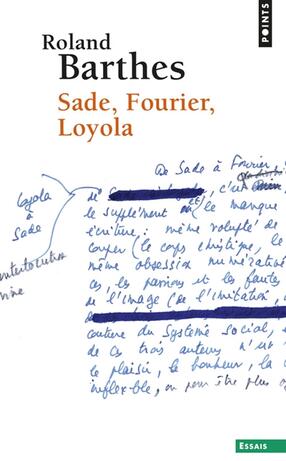 POINTS
Roland
Barthes
Sade, Fourier,
Loyola
De Sade à Fourier
Loyola
à
Sade
de c'est
le supplément le manque
écriture : même volupté de
couper (le corps christique, le
même obsession numérative
ces, les passions et les fautes
de l'image (de l'imitation,
couture du système social,
de ces trois auteurs n'
le plaisir, le bonheur, la
inflexible, peut être plus
ESSAIS